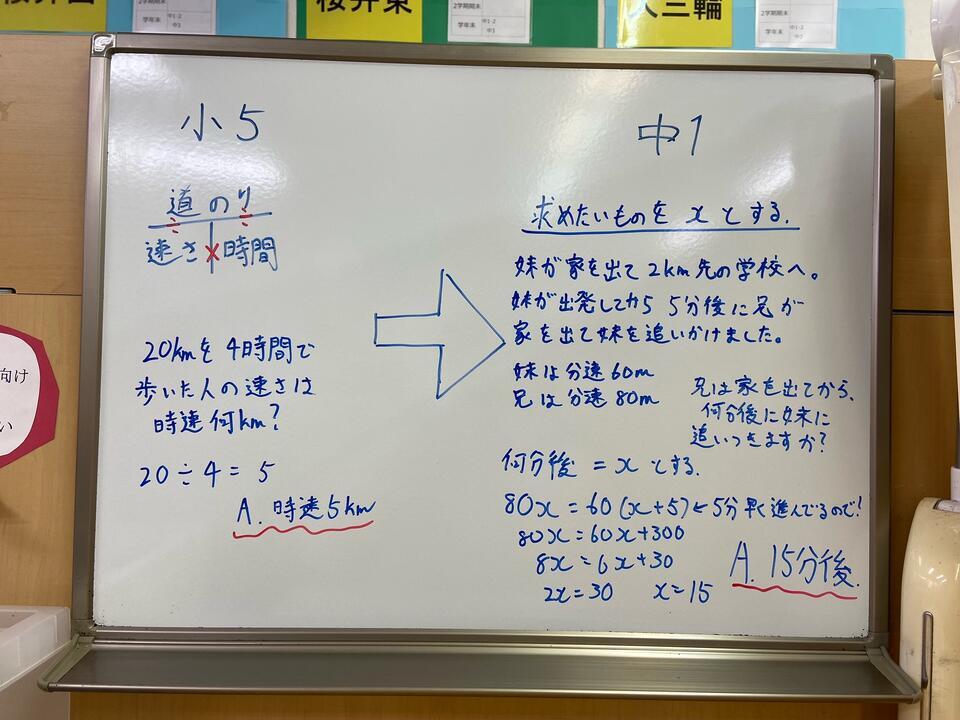 桜井西
桜井東
大三輪
2学期期末
学年末
中1-2
中3
2学期期末
学年末
中1-2
中3
学年末
中1-2
小5
道のり
÷ ÷
速さ×時間
20kmを4時間で
歩いた人の速さは
時速何km?
20÷4=5
A. 時速5km
中1
求めたいものをxとする.
妹が家を出て2km先の学校へ。
妹が出発してから5分後に兄が
家を出て妹を追いかけました。
妹は分速60m
兄は分速80m
兄は家を出てから、
何分後に妹に
追いつきますか?
何分後=xとする.
80x=60(x+5)←5分早く進んでるので!
80x=60x+300
8x=6x+30
2x=30 x=15
A. 15分後.
向け
い